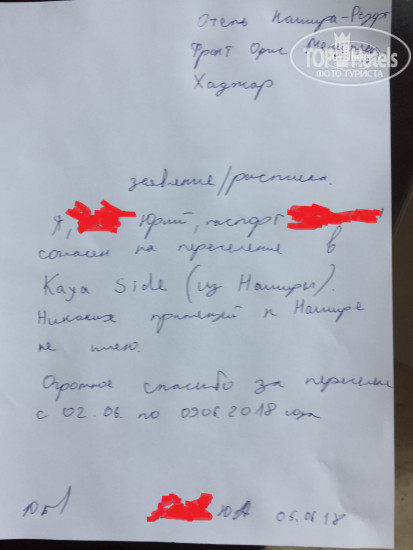 Отель Нашира-Резорт
TopHotels
Фронт Офис Менеджер
ФОТО ТУРИСТА
Хаджар
заявление/расписка.
Я, Юрий, паспорт
согласен на переселение в
Kaya Side (из Наширы).
Никаких претензий к Нашире
не имею.
Огромное спасибо за переселение
с 02.06. по 09.06.2018 года
ЮА 05.06.18